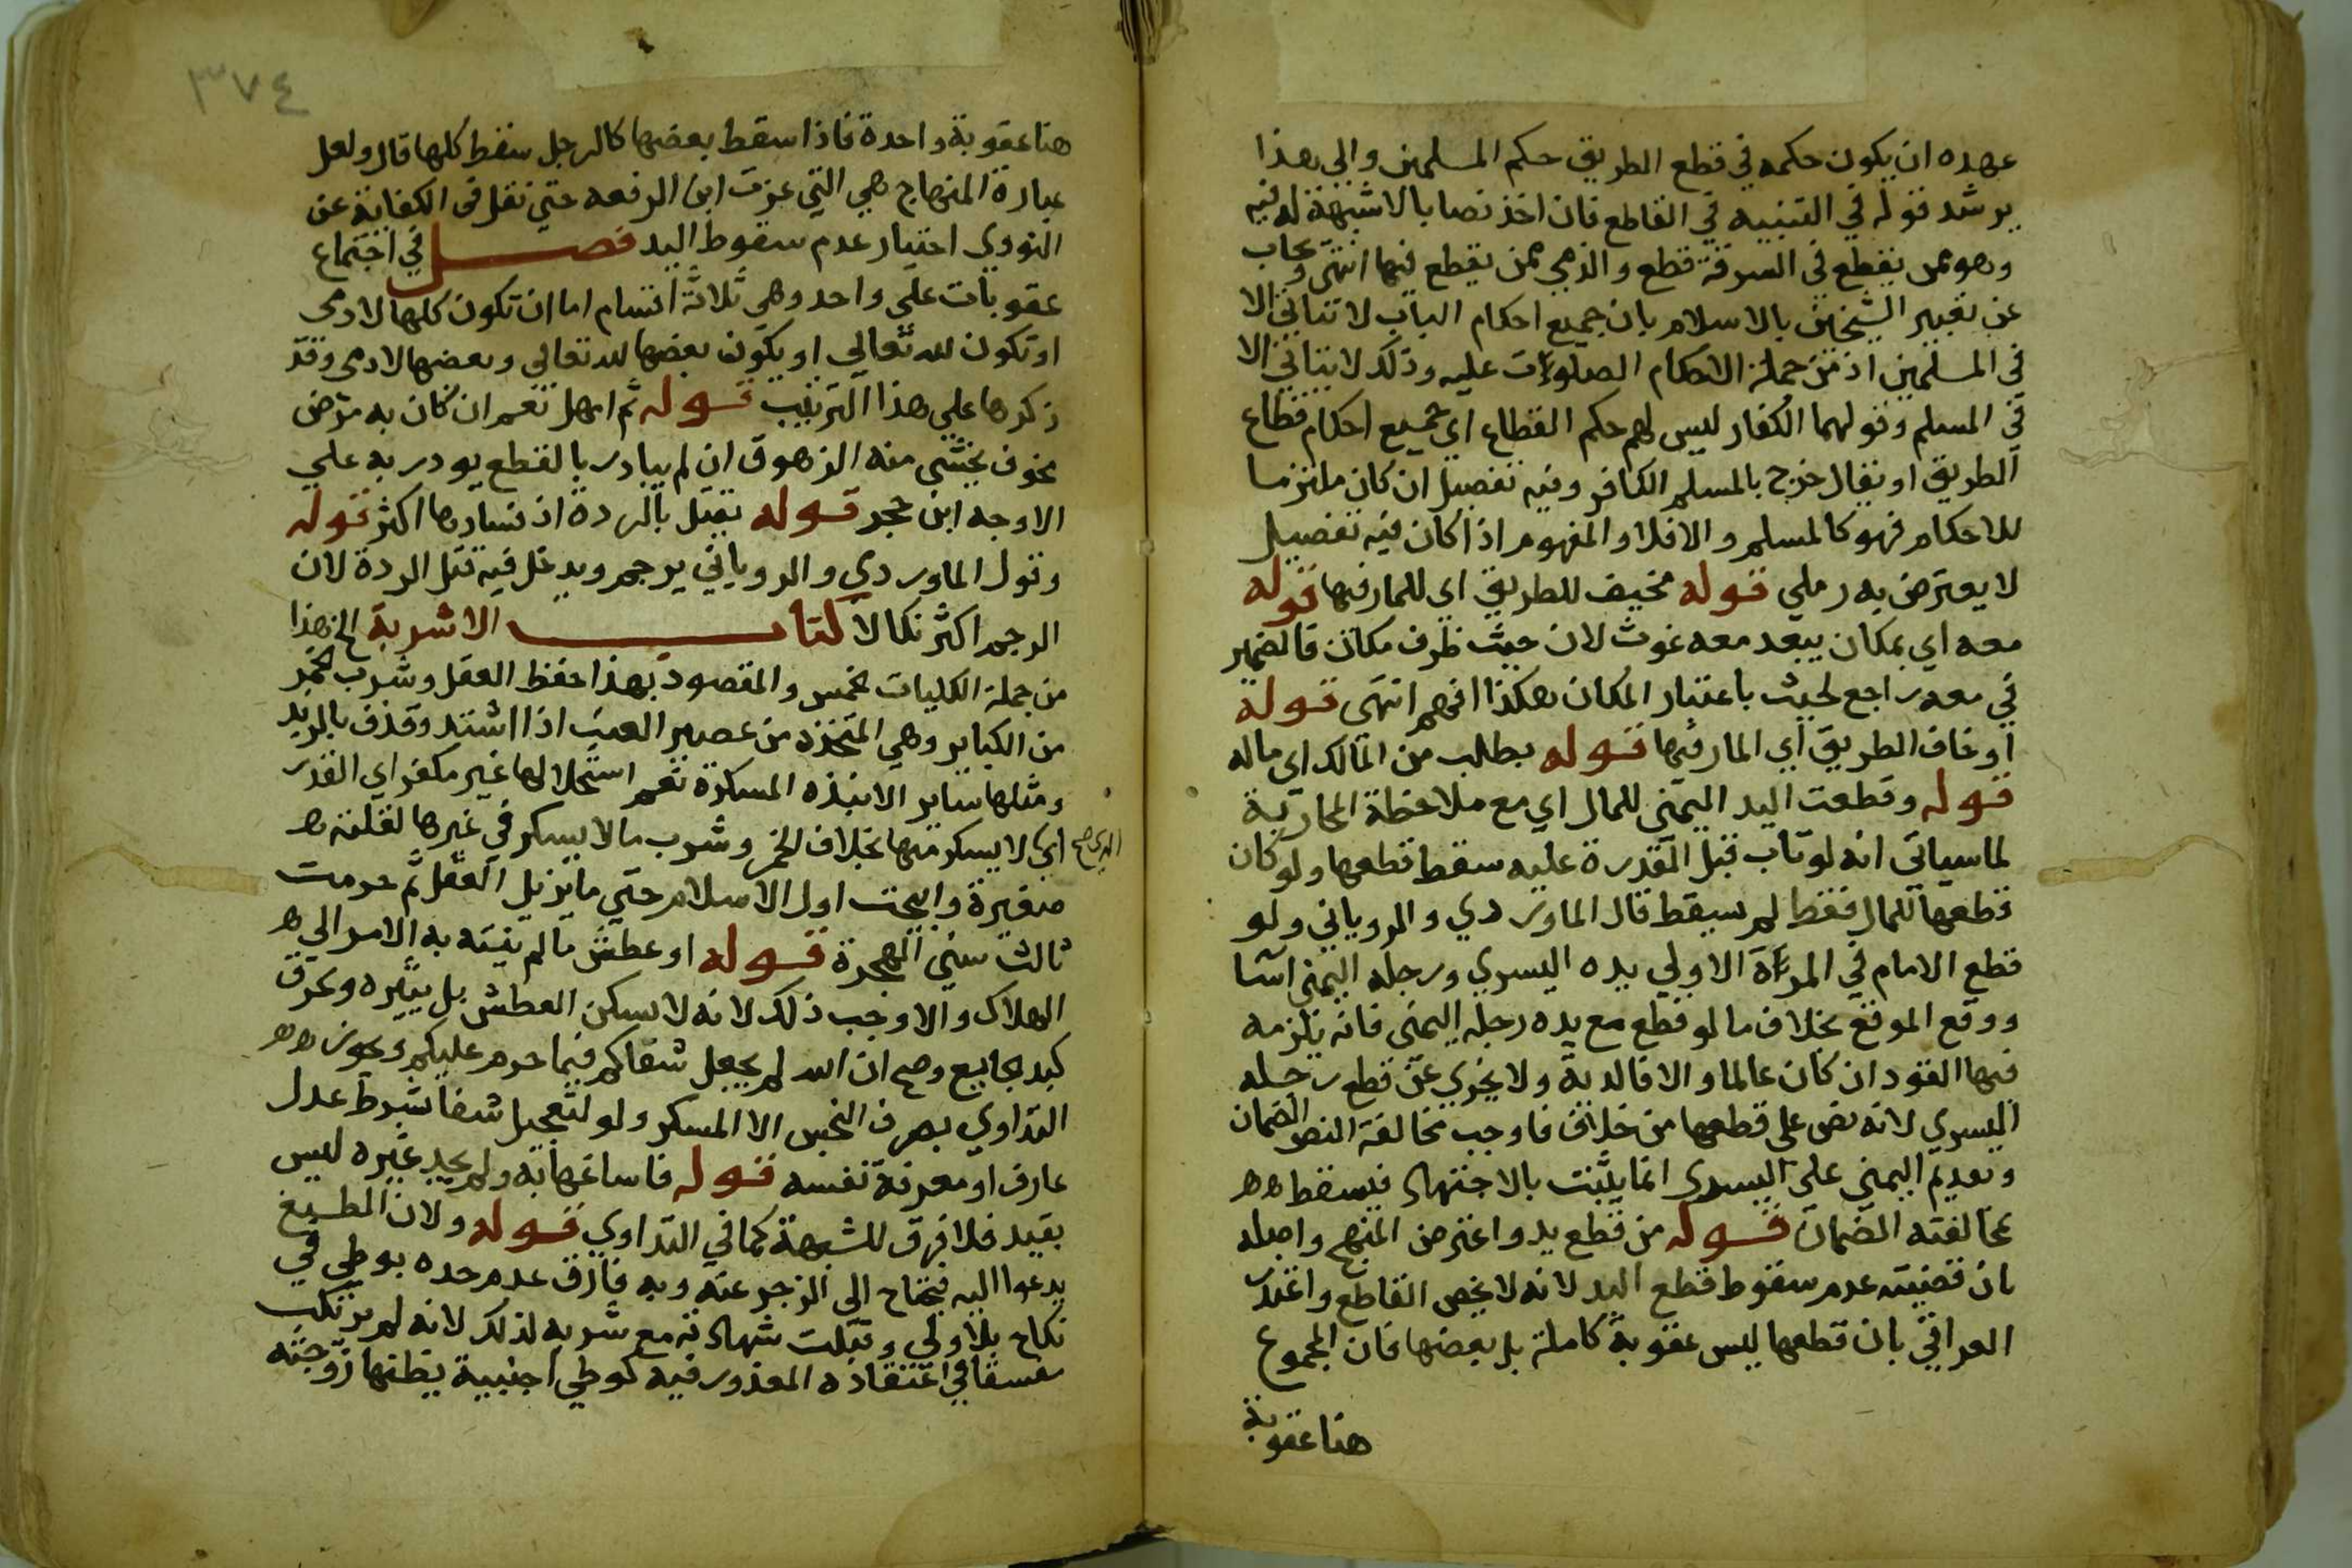 عهده ان يكون حكمه في قطع الطريق حكم المسلمين والى هذا
يرشد قوله في التنبيه في القاطع فان اخذ نصابا لا شبهة له فيه
وهو ممن يقطع في السرقة قطع والذمي ممن يقطع فيها انتهى ويجاب
عن تعبير الشيخين بالاسلام بان جميع احكام الباب لا تتاتى الا
في المسلمين اذ من جملة الاحكام الصلوات عليه وذلك لا يتاتى الا
في المسلم وقولهما الكفار ليس لهم حكم القطاع اي جميع احكام قطاع
الطريق او يقال خرج بالمسلم الكافر وفيه تفصيل ان كان ملتزما
للاحكام فهو كالمسلم والا فلا والمفهوم اذا كان فيه تفصيل
لا يعترض به رملي قوله مخيف للطريق اي للمار فيها قوله
معه اي بمكان يبعد معه غوث لان حيث ظرف مكان فالضمير
في معه راجع لحيث باعتبار المكان هكذا افهم انتهى قوله
او خاف الطريق اي المار فيها قوله بطلب من المالك اي ماله
قوله وقطعت اليد اليمنى للمال اي مع ملاحظة المحاربة
لما سياتي انه لو تاب قبل القدرة عليه سقط قطعها ولو كان
قطعها للمال فقط لم يسقط قال الماوردي والروياني ولو
قطع الامام في المرأة الاولى يده اليسرى ورجله اليمنى اسا
ووقع الموقع بخلاف ما لو قطع مع يده رجله اليمنى فانه يلزمه
فيها القود ان كان عالما والا فالدية ولا يجزي عن قطع رجله
اليسرى لانه نص على قطعها من خلاف فاوجب مخالفة النص الضمان
وتقديم اليمنى على اليسرى انما يثبت بالاجتهاد فيسقط هه
مخالفته الضمان قوله من قطع يد واعترض المنهج واصله
بان قضيته عدم سقوط قطع اليد لانه لا يخص القاطع واعتذر
العراقي بان قطعها ليس عقوبة كاملة بل بعضها فان المجموع
هنا عقوبة
٣٧٤
هنا عقوبة واحدة فاذا سقط بعضها كالرجل سقط كلها قال ولعل
عبارة المنهاج هي التي غرت ابن الرفعه حتى نقل في الكفاية عن
النووي اختيار عدم سقوط اليد فصل في اجتماع
عقوبات على واحد وهي ثلاثة اقسام اما ان تكون كلها لادمي
او تكون لله تعالى او يكون بعضها لله تعالى وبعضها لادمي وقد
ذكرها على هذا الترتيب قوله ثم امهل نعم ان كان به مرض
مخوف يخشى منه الزهوق ان لم يبادر بالقطع بودر به على
الاوجه ابن حجر قوله بقتل بالردة اذ فسادها اكثر قوله
وقول الماوردي والروياني يرجم ويدخل فيه قتل الردة لان
الرجم اكثر نكالا كتاب الاشربة الخ هذا
من جملة الكليات الخمس والمقصود بهذا حفظ العقل وشرب الخمر
من الكبائر وهي المتخذة من عصير العنب اذا اشتد وقذف بالزبد
ومثلها سائر الانبذه المسكرة نعم استحلالها غير مكفر اي القدر
الذي صح
اي لا يسكر منها بخلاف الخمر وشرب ما لا يسكر في غيرها لقلته ه
صغيرة وابيحت اول الاسلام حتى ما يزيل العقل ثم حرمت
ثالث سني الهجرة قوله او عطش ما لم ينته به الامر الى ه
الهلاك والا وجب ذلك لانه لا يسكن العطش بل يثيره وعرق
كبد بجايع وصح ان الله لم يجعل شفاكم فيما حرم عليكم ويجوز هه
التداوي بصرف النجس الا المسكر ولو لتعجيل شفا بشرط عدل
عارف او معرفة نفسه قوله فاساغها به ولم يجد غيره ليس
بقيد فلا فرق للشبهة كما في التداوي قوله ولان الطبع
يدعوا اليه فيحتاج الى الزجر عنه وبه فارق عدم حده بوطئ في
نكاح بلا ولي وقبلت شهادته مع شربه لذلك لانه لم يرتكب
مفسقا في اعتقاده المعذور فيه كوطئ اجنبية يظنها زوجته